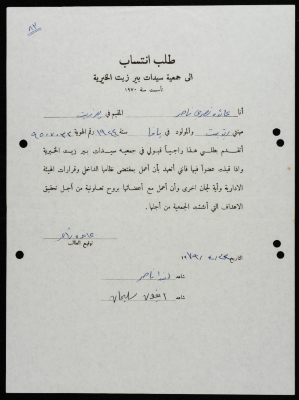 ٨٧
طلب انتساب
الى جمعية سيدات بير زيت الخيرية
تأسست سنة ١٩٧٠
أنا عائده نصري ناصر المقيم في بيرزيت
مهنتي والمولود في يافا سنة ١٩٢٤ رقم الهوية
أتقدم بطلبي هذا راجياً قبولي في جمعية سيدات بير زيت الخيرية
واذا قبلت عضواً فيها فاني أتعهد بأن أعمل بمقتضى نظامها الداخلي وقرارات الهيئة
الادارية وأية لجان اخرى وأن أعمل مع أعضائها بروح تعاونية من أجل تحقيق
الاهداف التي أنشئت الجمعية من أجلها .
عائده ناصر
توقيع الطالب
التاريخ
شاهد ناصر
شاهد سليمان